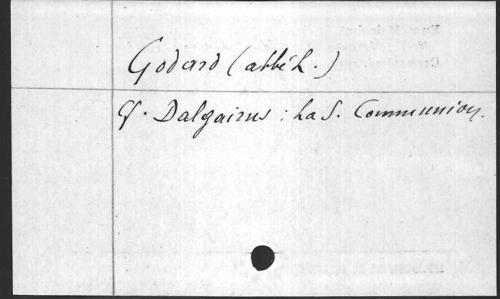 Godard (abbé L.)
Cf. Dalgairns : La S. Communion.